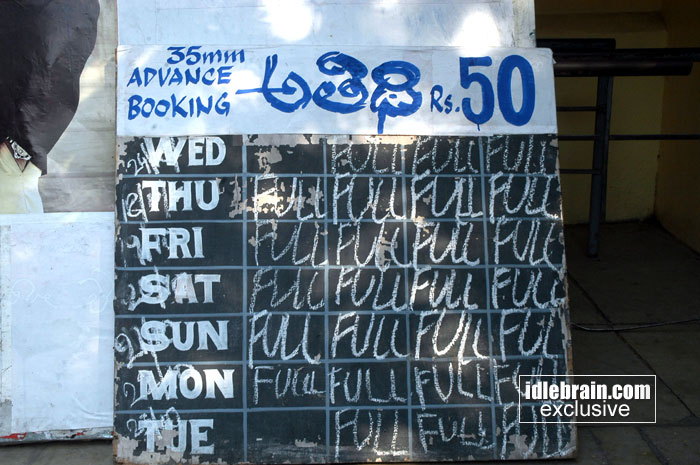 35mm
ADVANCE
BOOKING
అతిథి Rs. 50
WED FULL FULL FULL
THU FULL FULL FULL FULL
FRI FULL FULL FULL FULL
SAT FULL FULL FULL FULL
SUN FULL FULL FULL FULL
MON FULL FULL FULL FULL
TUE FULL FULL FULL
idlebrain.com
exclusive